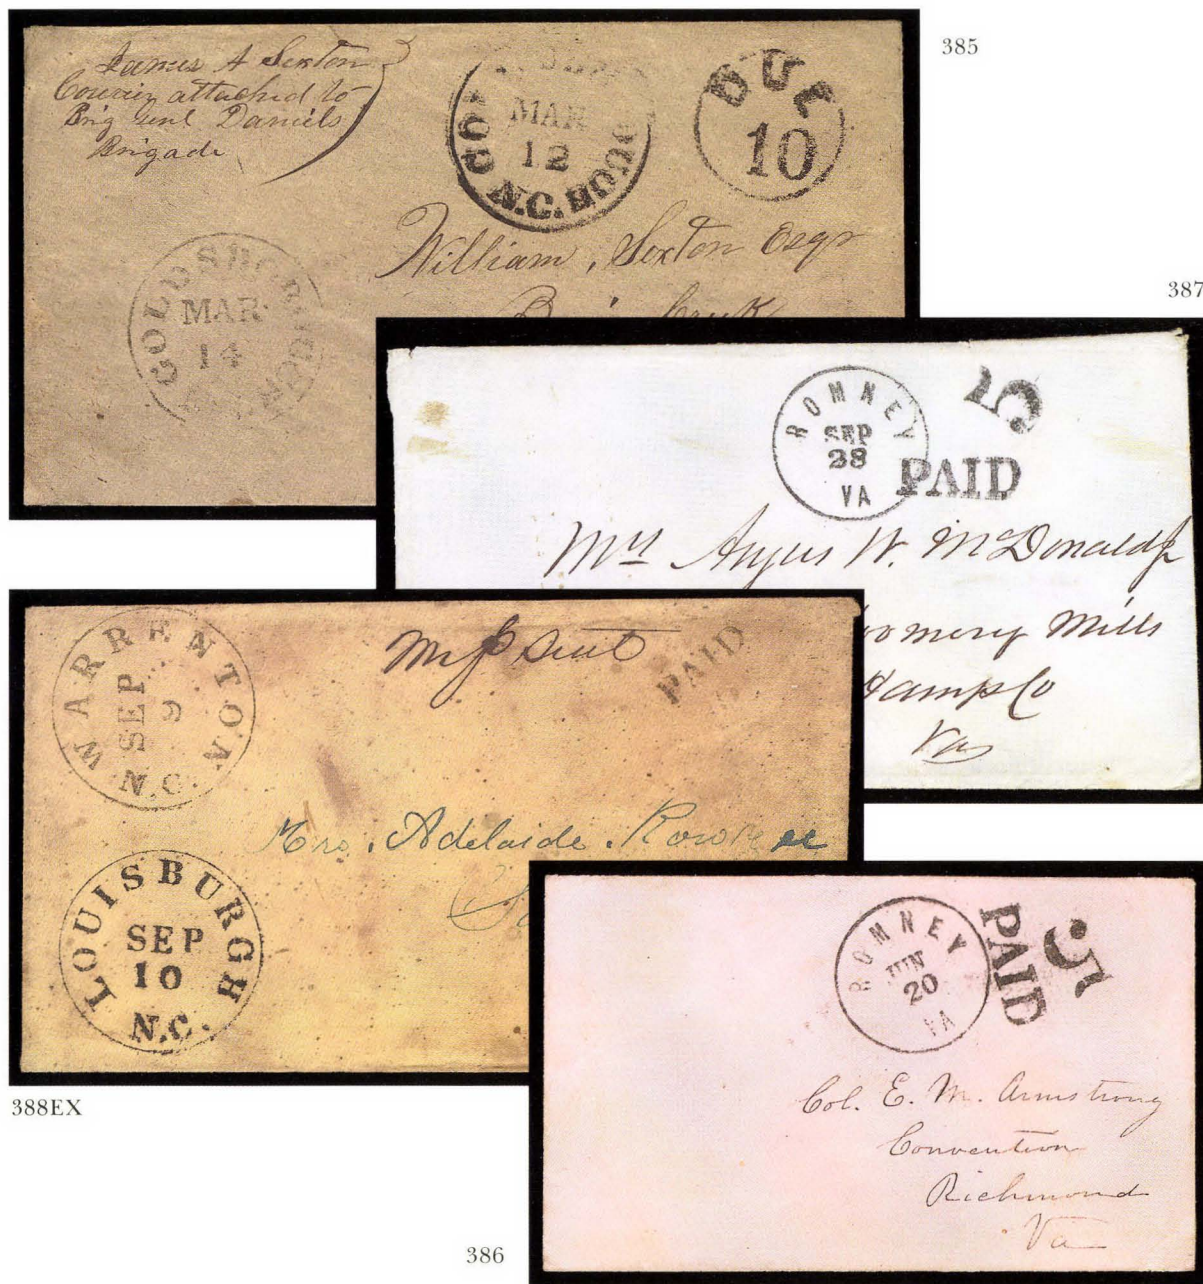 385
James A Sexton
Courier attached to
Brig Genl Daniels
Brigade
MAR
12
N.C.
DUE
10
GOLDSBORO
MAR
14
William, Sexton Esqr
387
ROMNEY
SEP
28
VA
5
PAID
Mrs Angus W. McDonald Jr
oomery Mills
Hamp Co
Va
WARRENTON
SEP
9
N.C.
PAID
Mrs. Adelaide
LOUISBURGH
SEP
10
N.C.
388EX
ROMNEY
JUN
20
VA
PAID
5
Col. E. M. Armstrong
Convention
Richmond
Va
386